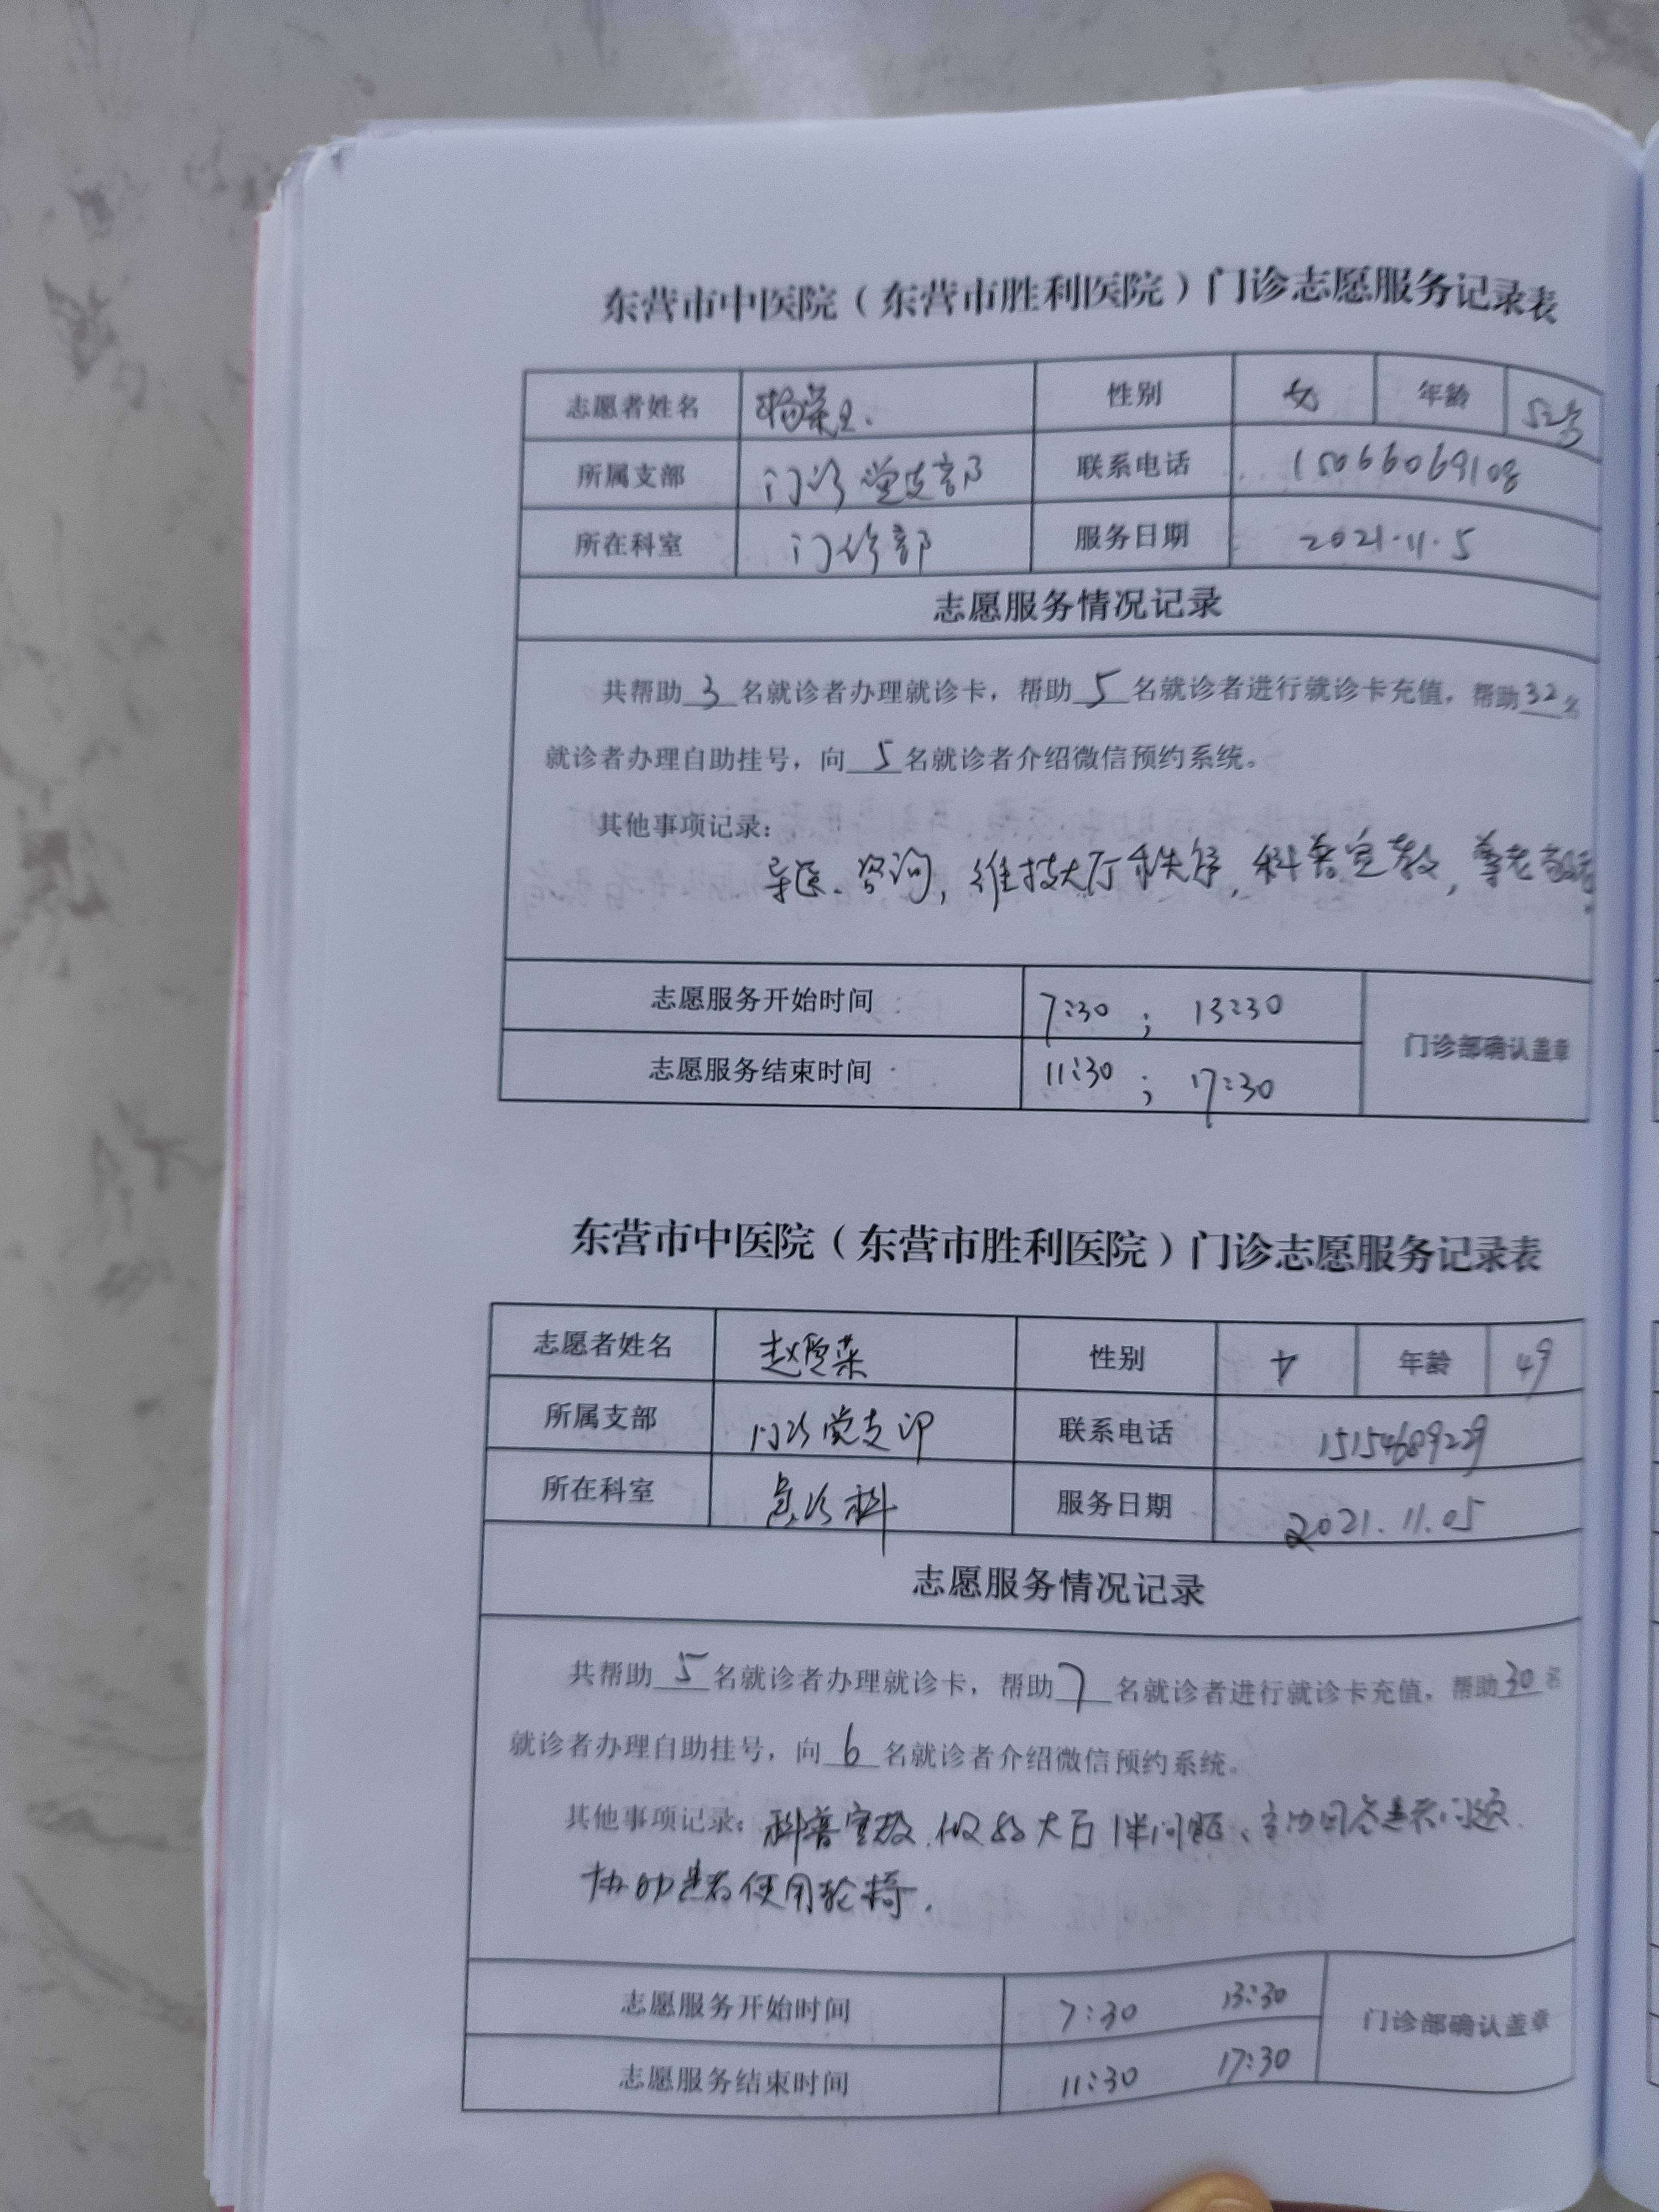 东营市中医院（东营市胜利医院）门诊志愿服务记录表
志愿者姓名 杨荣 性别 女 年龄 52岁
所属支部 门诊党支部 联系电话 15066069108
所在科室 门诊部 服务日期 2021.11.5
志愿服务情况记录
共帮助 3 名就诊者办理就诊卡，帮助 5 名就诊者进行就诊卡充值，帮助 32 名
就诊者办理自助挂号，向 5 名就诊者介绍微信预约系统。
其他事项记录：
导医、咨询，维持大厅秩序，科普宣教，尊老
志愿服务开始时间 7:30 ； 13:30 门诊部确认盖章
志愿服务结束时间 11:30 ； 17:30
东营市中医院（东营市胜利医院）门诊志愿服务记录表
志愿者姓名 赵爱荣 性别 女 年龄 49
所属支部 门诊党支部 联系电话 15154689229
所在科室 急诊科 服务日期 2021.11.05
志愿服务情况记录
共帮助 5 名就诊者办理就诊卡，帮助 7 名就诊者进行就诊卡充值，帮助 30 名
就诊者办理自助挂号，向 6 名就诊者介绍微信预约系统。
其他事项记录：科普宣教、做好大厅 问题、主动回答患者问题、
协助患者使用轮椅.
志愿服务开始时间 7:30 13:30 门诊部确认盖章
志愿服务结束时间 11:30 17:30